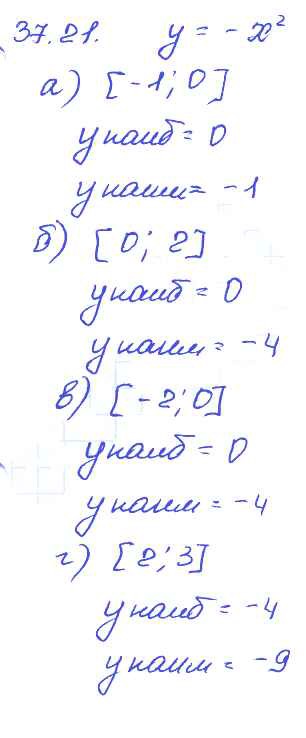 37.21. y = -x²
а) [-1; 0]
y наиб = 0
y наим = -1
б) [0; 2]
y наиб = 0
y наим = -4
в) [-2; 0]
y наиб = 0
y наим = -4
г) [2; 3]
y наиб = -4
y наим = -9